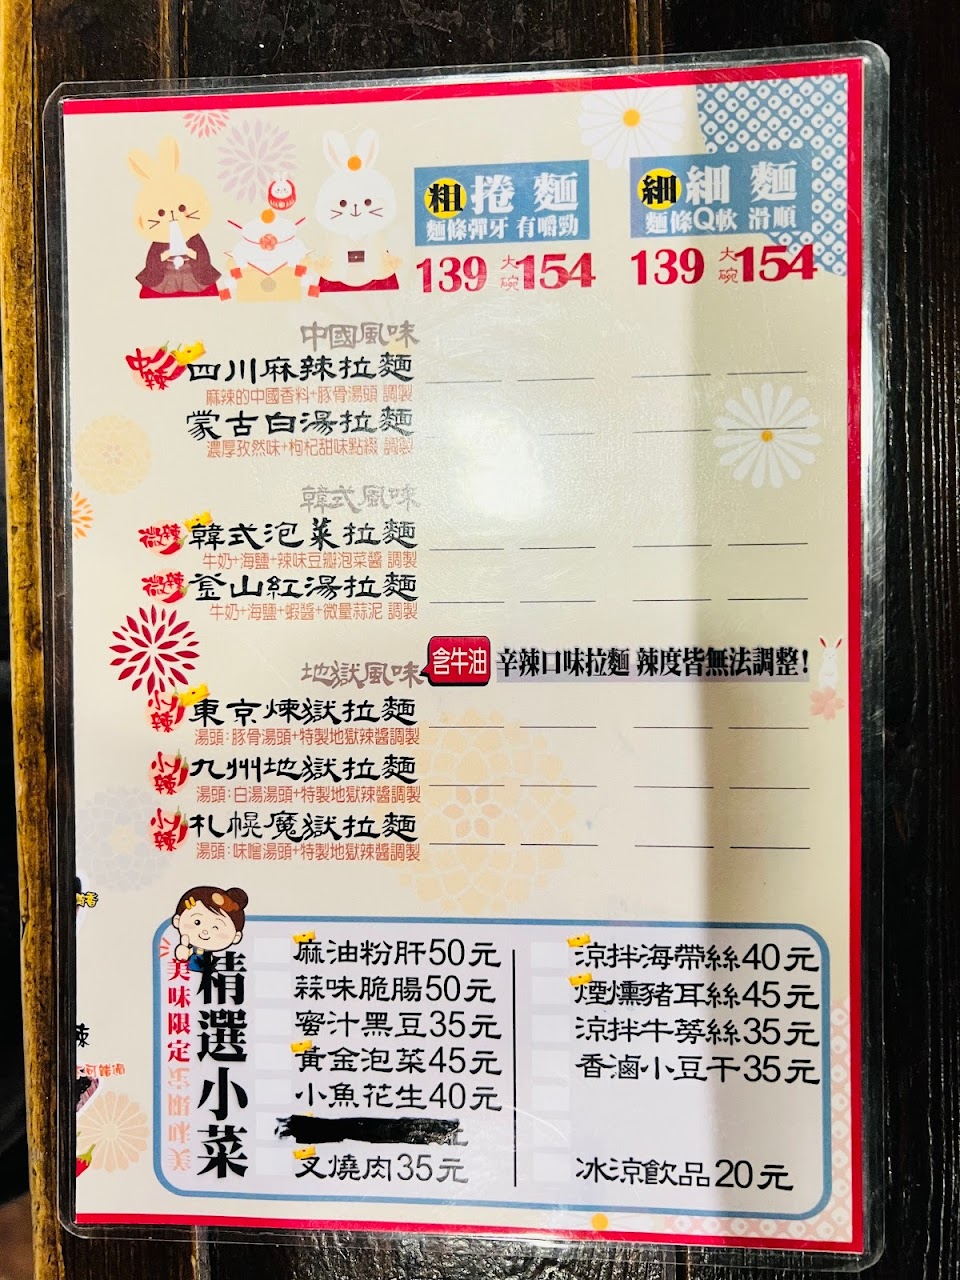 粗 捲麵
麵條彈牙 有嚼勁
139 大碗154
細 細麵
麵條Q軟 滑順
139 大碗154
中國風味
中辣 四川麻辣拉麵
麻辣的中國香料+豚骨湯頭 調製
蒙古白湯拉麵
濃厚孜然味+枸杞甜味點綴 調製
韓式風味
微辣 韓式泡菜拉麵
牛奶+海鹽+辣味豆瓣泡菜醬 調製
微辣 釜山紅湯拉麵
牛奶+海鹽+蝦醬+微量蒜泥 調製
地獄風味 含牛油 辛辣口味拉麵 辣度皆無法調整!
小辣 東京煉獄拉麵
湯頭:豚骨湯頭+特製地獄辣醬調製
小辣 九州地獄拉麵
湯頭:白湯湯頭+特製地獄辣醬調製
小辣 札幌魔獄拉麵
湯頭:味噌湯頭+特製地獄辣醬調製
美味限定
精選小菜
麻油粉肝50元
蒜味脆腸50元
蜜汁黑豆35元
黃金泡菜45元
小魚花生40元
元
叉燒肉35元
涼拌海帶絲40元
煙燻豬耳絲45元
涼拌牛蒡絲35元
香滷小豆干35元
冰涼飲品20元